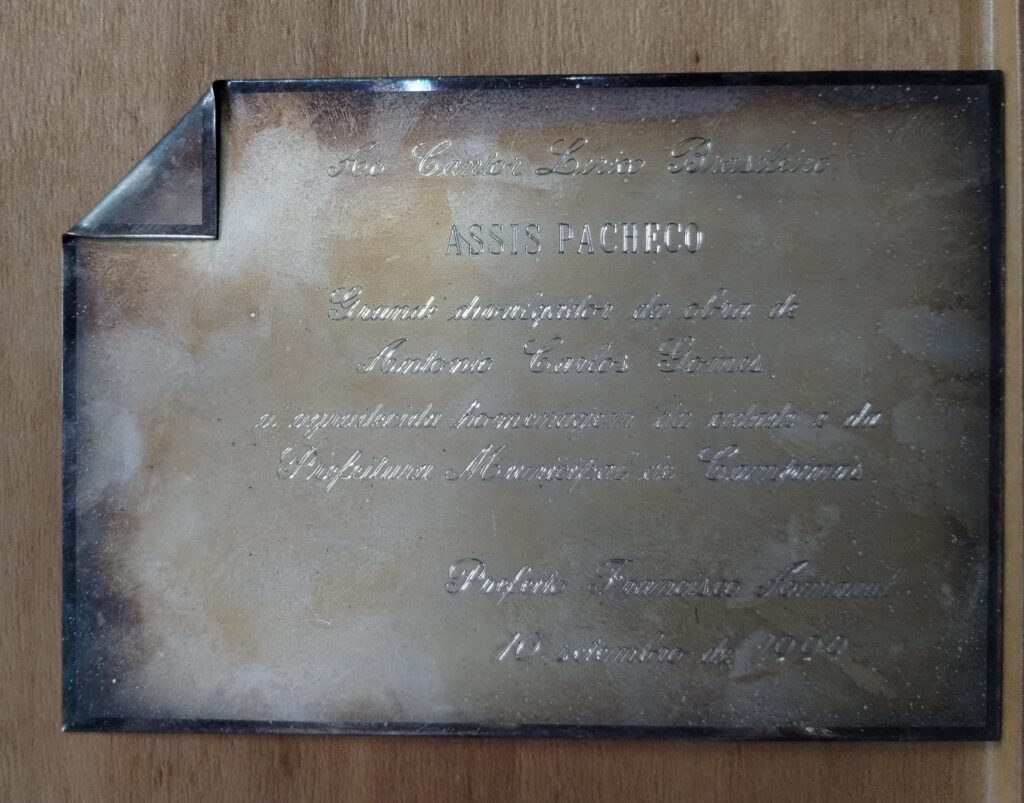 Ao Cantor Lírico Brasileiro
ASSIS PACHECO
Grande divulgador da obra de
Antonio Carlos Gomes,
a agradecida homenagem da cidade e da
Prefeitura Municipal de Campinas.
Prefeito Francisco Amaral
10 setembro de 1999